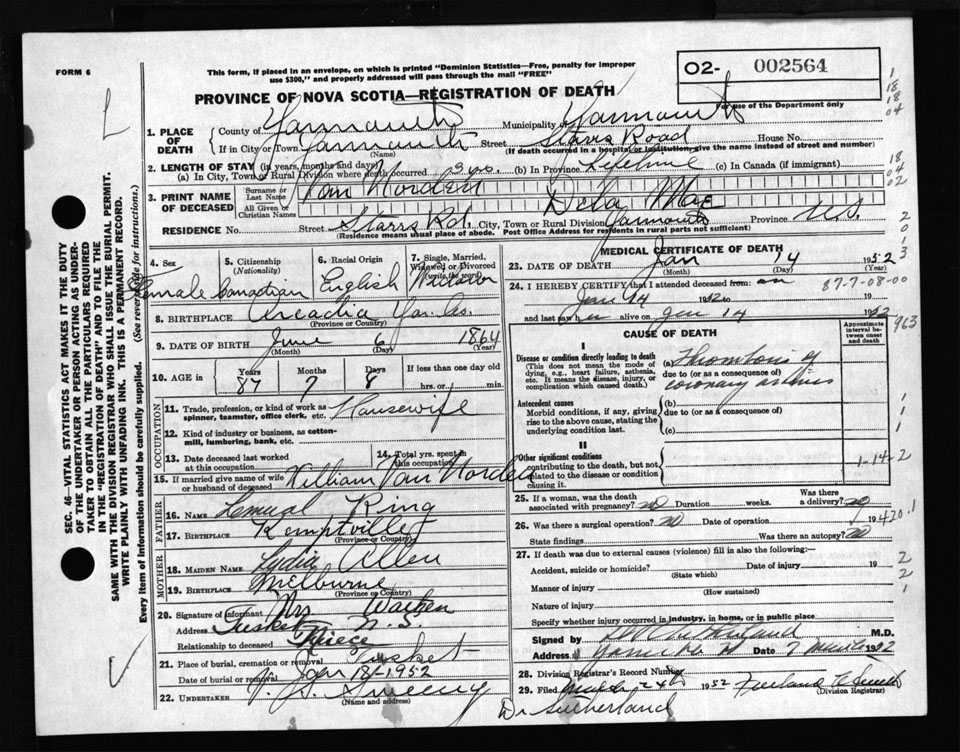 FORM 6
This form, if placed in an envelope, on which is printed "Dominion Statistics—Free, penalty for improper
use $300," and properly addressed will pass through the mail "FREE"
O2- 002564
For use of the Department only
PROVINCE OF NOVA SCOTIA—REGISTRATION OF DEATH
1. PLACE OF DEATH
County of Yarmouth Municipality of Yarmouth
If in City or Town Yarmouth Street Starrs Road House No.
(Name) (If death occurred in a hospital or institution give the name instead of street and number)
2. LENGTH OF STAY (in years, months and days)
(a) In City, Town or Rural Division where death occurred 3 yrs. (b) In Province Lifetime (c) In Canada (if immigrant)
3. PRINT NAME OF DECEASED
Surname or Last Name Van Norden
All Given or Christian Names Mae
RESIDENCE No. Street Starrs Rd. City, Town or Rural Division Yarmouth Province N.S.
(Residence means usual place of abode. Post Office Address for residents in rural parts not sufficient)
4. Sex Female
5. Citizenship (Nationality) Canadian
6. Racial Origin English
7. Single, Married, Widowed or Divorced (write the word) Widow
8. BIRTHPLACE Arcadia Yar. Co.
(Province or Country)
9. DATE OF BIRTH June 6 1864
(Month) (Day) (Year)
10. AGE in Years Months Days If less than one day old
87 7 8 hrs. or min.
OCCUPATION
11. Trade, profession, or kind of work as spinner, teamster, office clerk, etc. Housewife
12. Kind of industry or business, as cotton-mill, lumbering, bank, etc.
13. Date deceased last worked at this occupation
14. Total yrs. spent in this occupation
15. If married give name of wife or husband of deceased William Van Norden
FATHER
16. NAME Lemuel Ring
17. BIRTHPLACE Kemptville
(Province or Country)
MOTHER
18. MAIDEN NAME Lydia Allen
19. BIRTHPLACE Melburne
(Province or Country)
20. Signature of informant Mrs
Address Tusket N.S.
Relationship to deceased Niece
21. Place of burial, cremation or removal Tusket
Date of burial or removal Jan 18/1952
22. UNDERTAKER Sweeny
(Name and address)
MEDICAL CERTIFICATE OF DEATH
23. DATE OF DEATH Jan 14 1952
(Month) (Day) (Year)
24. I HEREBY CERTIFY that I attended deceased from: on
Jan 14 1952 to 19
and last saw her alive on Jan 14 1952
87-7-08-00
CAUSE OF DEATH
Approximate interval between onset and death
I
Disease or condition directly leading to death
(This does not mean the mode of dying, e.g., heart failure, asthenia, etc. It means the disease, injury, or complication which caused death.)
(a) Thrombosis of
due to (or as a consequence of)
coronary
Antecedent causes
Morbid conditions, if any, giving rise to the above cause, stating the underlying condition last.
(b)
due to (or as a consequence of)
(c)
II
Other significant conditions
contributing to the death, but not related to the disease or condition causing it.
1-14-2
25. If a woman, was the death associated with pregnancy? no Duration weeks. Was there a delivery? no
26. Was there a surgical operation? no Date of operation 19
State findings Was there an autopsy? no
420.1
27. If death was due to external causes (violence) fill in also the following:—
Accident, suicide or homicide? Date of injury 19
(State which)
Manner of injury
(How sustained)
Nature of injury
Specify whether injury occurred in industry, in home, or in public place
Signed by M.D.
Address Date 1952
28. Division Registrar's Record Number
29. Filed 24th 1952
(Division Registrar)
Dr Sutherland
SEC. 46—VITAL STATISTICS ACT MAKES IT THE DUTY
OF THE UNDERTAKER OR PERSON ACTING AS UNDER-
TAKER TO OBTAIN ALL THE PARTICULARS REQUIRED
IN THE "REGISTRATION OF DEATH" AND TO FILE THE
SAME WITH THE DIVISION REGISTRAR WHO SHALL ISSUE THE BURIAL PERMIT.
WRITE PLAINLY WITH UNFADING INK. THIS IS A PERMANENT RECORD.
Every item of information should be carefully supplied. (See reverse side for instructions.)